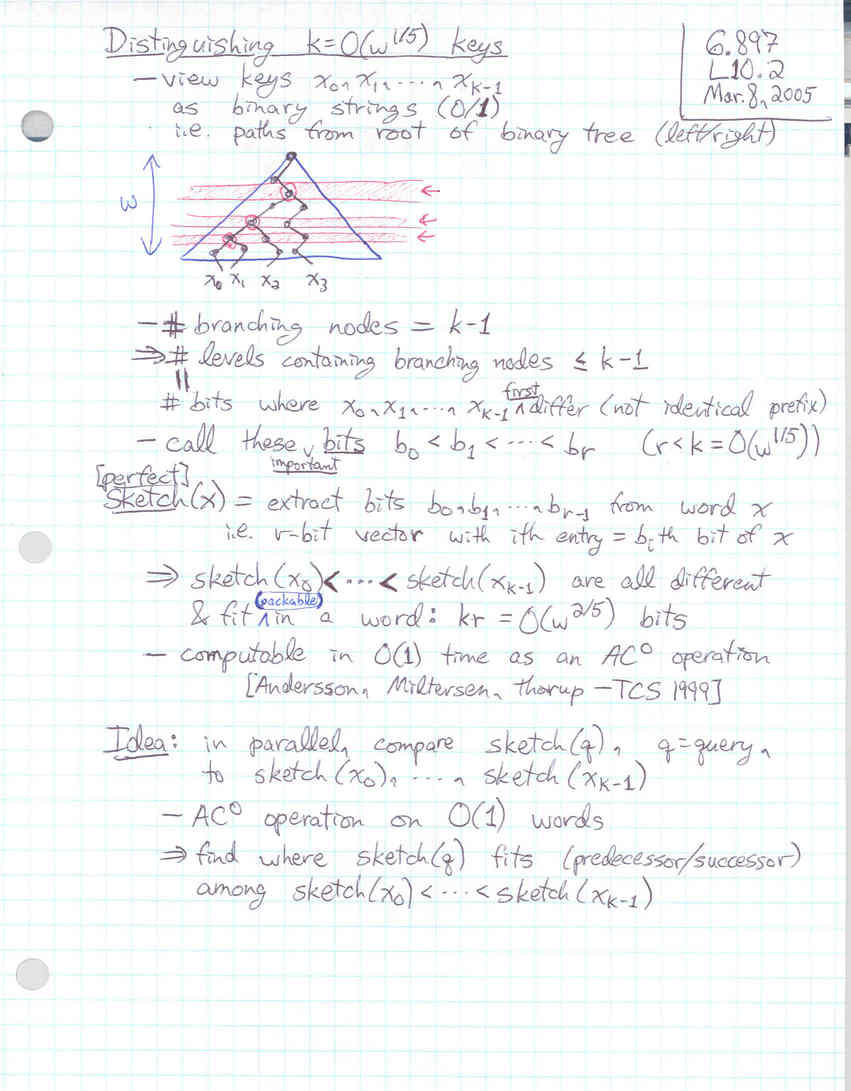 Distinguishing k=O(w^{1/5}) keys
6.897
L10.2
Mar. 8, 2005
– view keys x₀, x₁, ..., x_{k-1}
as binary strings (0/1)
i.e. paths from root of binary tree (left/right)
w
x₀ x₁ x₂ x₃
– # branching nodes = k-1
⇒ # levels containing branching nodes ≤ k-1
||
# bits where x₀, x₁, ..., x_{k-1} first differ (not identical prefix)
– call these important bits b₀ < b₁ < ... < b_r (r < k = O(w^{1/5}))
[perfect]
Sketch(x) = extract bits b₀, b₁, ..., b_{r-1} from word x
i.e. r-bit vector with ith entry = b_i th bit of x
⇒ sketch(x₀) < ... < sketch(x_{k-1}) are all different
& fit (packable) in a word: kr = O(w^{2/5}) bits
– computable in O(1) time as an AC⁰ operation
[Andersson, Miltersen, Thorup – TCS 1999]
Idea: in parallel, compare sketch(q), q=query,
to sketch(x₀), ..., sketch(x_{k-1})
– AC⁰ operation on O(1) words
⇒ find where sketch(q) fits (predecessor/successor)
among sketch(x₀) < ... < sketch(x_{k-1})